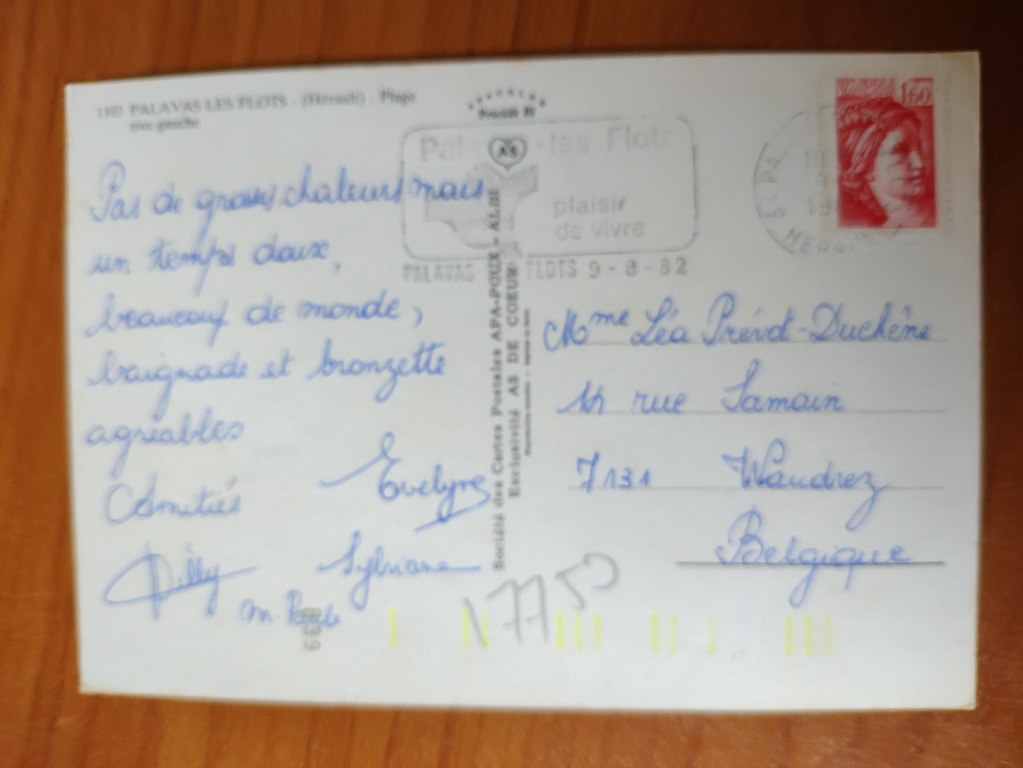 1103 PALAVAS-LES-FLOTS - (Hérault) : Plage
rive gauche
Pas de grosses chaleurs mais
un temps doux,
beaucoup de monde,
baignade et bronzette
agréables
Amitiés
Evelyne
Willy
Sylviane
m. Paule
AS
Société des Cartes Postales APA-POUX - ALBI
Exclusivité AS DE COEUR
-les-Flots
plaisir
de vivre
PALAVAS FLOTS 9-8-82
1,60
Mme Léa Prévot-Duchêne
14 rue Samain
7131 Waudrez
Belgique
17750